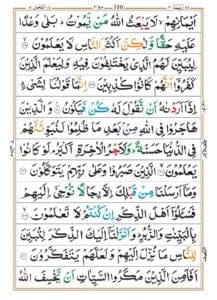 اَيْمَانِهِمْ ۙ لَا يَبْعَثُ اللّٰهُ مَنْ يَّمُوْتُ ؕ بَلٰى وَعْدًا
عَلَيْهِ حَقًّا وَّلٰكِنَّ اَكْثَرَ النَّاسِ لَا يَعْلَمُوْنَ
كَفَرُوْۤا اَنَّهُمْ كَانُوْا كٰذِبِيْنَ اِنَّمَا قَوْلُنَا لِشَىْءٍ
اِذَاۤ اَرَدْنٰهُ اَنْ نَّقُوْلَ لَهٗ كُنْ فَيَكُوْنُ وَالَّذِيْنَ
هَاجَرُوْا فِى اللّٰهِ مِنْۢ بَعْدِ مَا ظُلِمُوْا لَنُبَوِّئَنَّهُمْ
فِى الدُّنْيَا حَسَنَةً ؕ وَلَاَجْرُ الْاٰخِرَةِ اَكْبَرُ ۘ لَوْ كَانُوْا
يَعْلَمُوْنَ الَّذِيْنَ صَبَرُوْا وَعَلٰى رَبِّهِمْ يَتَوَكَّلُوْنَ
وَمَاۤ اَرْسَلْنَا مِنْ قَبْلِكَ اِلَّا رِجَالًا نُّوْحِىْۤ اِلَيْهِمْ
فَسْئَلُوْۤا اَهْلَ الذِّكْرِ اِنْ كُنْتُمْ لَا تَعْلَمُوْنَ
بِالْبَيِّنٰتِ وَالزُّبُرِ ؕ وَاَنْزَلْنَاۤ اِلَيْكَ الذِّكْرَ لِتُبَيِّنَ
لِلنَّاسِ مَا نُزِّلَ اِلَيْهِمْ وَلَعَلَّهُمْ يَتَفَكَّرُوْنَ
اَفَاَمِنَ الَّذِيْنَ مَكَرُوا السَّيِّاٰتِ اَنْ يَّخْسِفَ اللّٰهُ